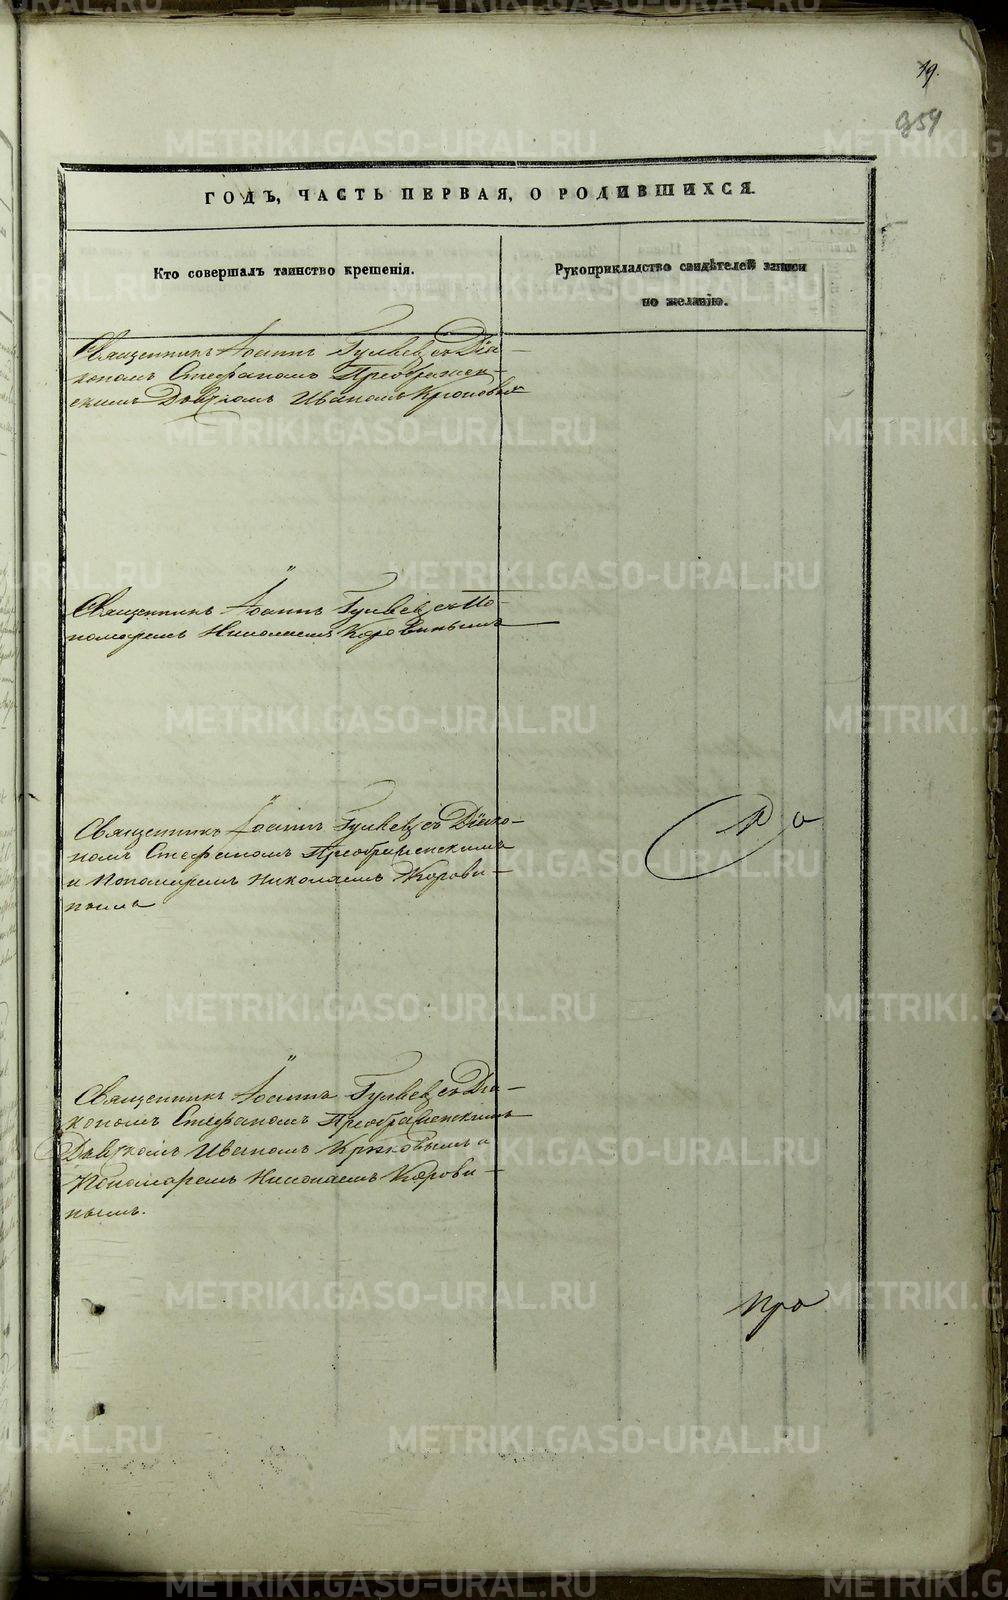 19.
354
ГОДЪ, ЧАСТЬ ПЕРВАЯ, О РОДИВШИХСЯ.
Кто совершалъ таинство крещенія.
Рукоприкладство свидѣтелей записи
по желанію.
Священникъ Іоаннъ Гуляевъ съ Діа-
кономъ Стефаномъ Преображен-
скимъ Дьячкомъ Иваномъ Крюковымъ
Священникъ Іоаннъ Гуляевъ съ По-
номаремъ Николаемъ Коровинымъ
Священникъ Іоаннъ Гуляевъ съ Діако-
номъ Стефаномъ Преображенскимъ
и Пономаремъ Николаемъ Корови-
нымъ
Священникъ Іоаннъ Гуляевъ съ Діа-
кономъ Стефаномъ Преображенскимъ
Дьячкомъ Иваномъ Крюковымъ и
Пономаремъ Николаемъ Корови-
нымъ.
METRIKI.GASO-URAL.RU